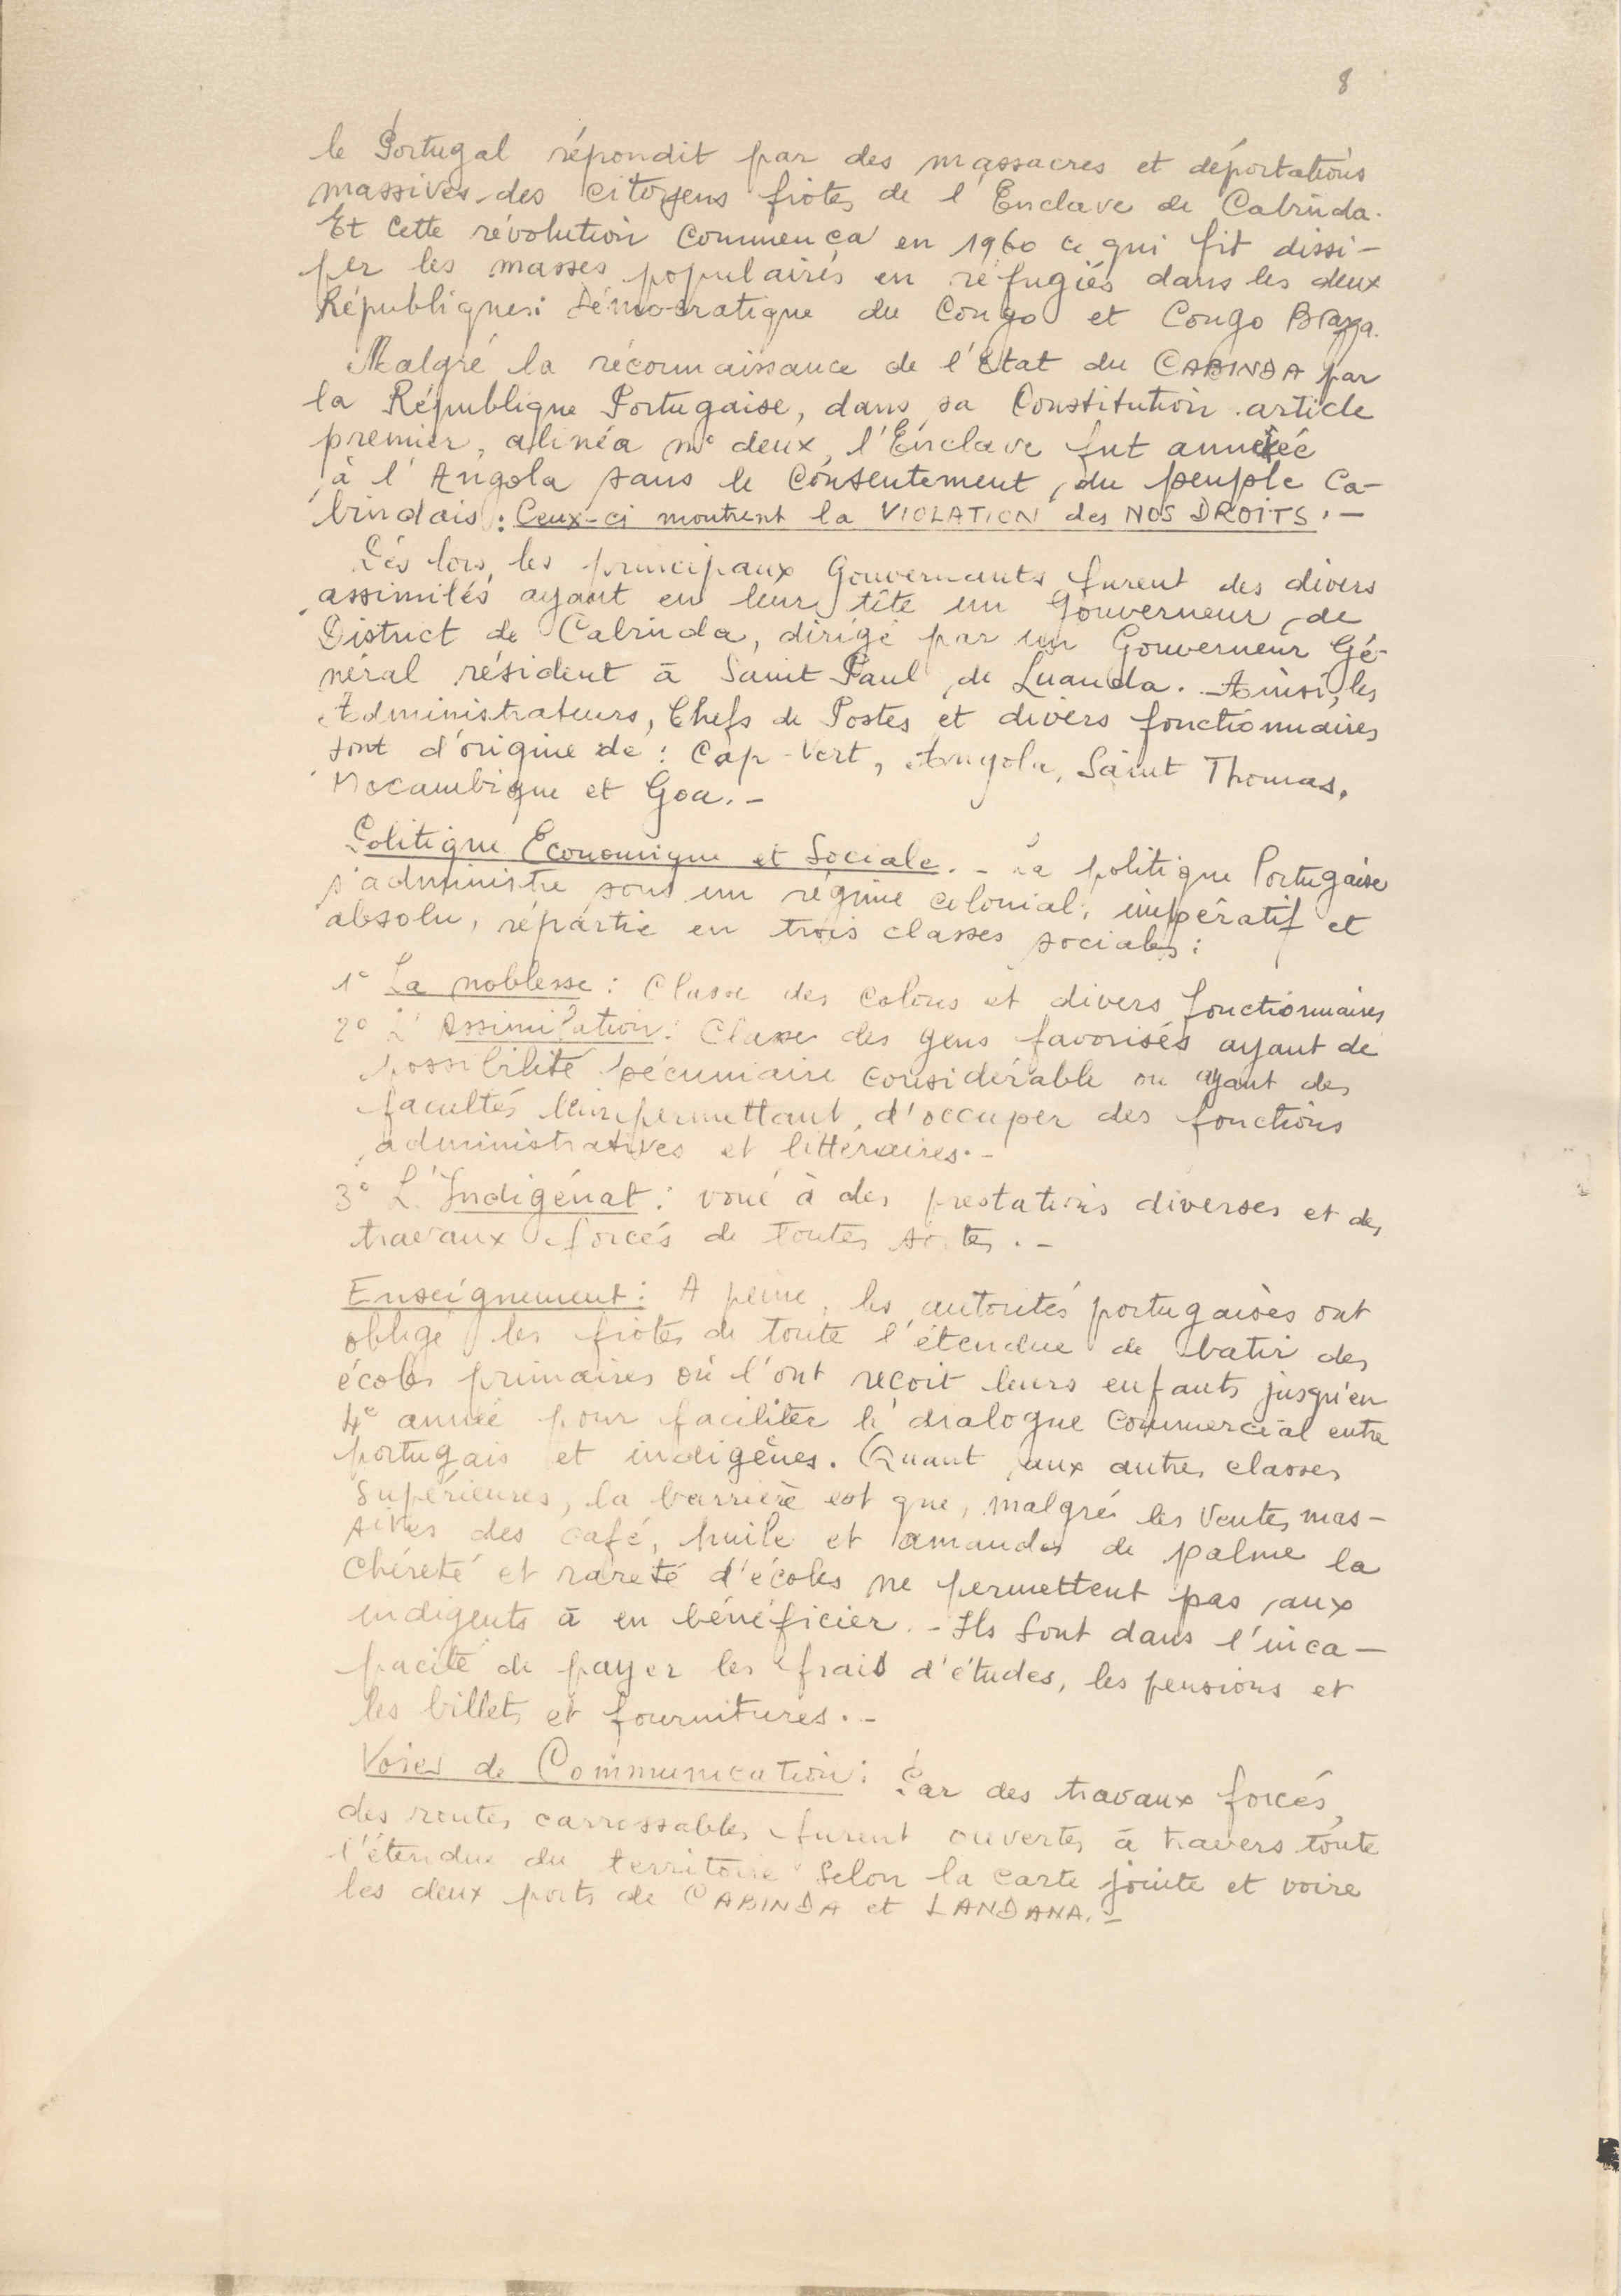 8
le Portugal répondit par des massacres et déportations
massives des citoyens fiotes de l'Enclave de Cabinda.
Et cette révolution commença en 1960 ce qui fit dissi-
per les masses populaires en réfugiés dans les deux
Républiques: Démocratique du Congo et Congo Brazza.
Malgré la réconnaissance de l'Etat du CABINDA par
la République Portugaise, dans sa Constitution article
premier, alinéa n° deux, l'Enclave fut annexée
à l'Angola sans le consentement du peuple Ca-
bindais: Ceux-ci montrent la VIOLATION des NOS DROITS.-
Dès lors, les principaux Gouvernants furent des divers
assimilés ayant en leur tête un Gouverneur de
District de Cabinda, dirigé par un Gouverneur Gé-
néral résident à Saint Paul de Luanda. Ainsi, les
Administrateurs, Chefs de Postes et divers fonctionnaires
sont d'origine de: Cap-Vert, Angola, Saint Thomas,
Mocambique et Goa.-
Politique Economique et Sociale.- La politique Portugaise
s'administre sous un régime colonial, impératif et
absolu, répartie en trois classes sociales:
1° La noblesse: Classe des colons et divers fonctionnaires
2° L'Assimilation: Classe des gens favorisés ayant de
possibilité pécuniaire considérable ou ayant des
facultés leur permettant d'occuper des fonctions
administratives et littéraires.-
3° L'Indigénat: voué à des prestations diverses et des
travaux forcés de toutes sortes.-
Enseignement: A peine, les autorités portugaises ont
obligé les fiotes de toute l'étendue de batir des
écoles primaires où l'ont reçoit leurs enfants jusqu'en
4e année pour faciliter le dialogue commercial entre
portugais et indigènes. Quant aux autres classes
Supérieures, la barrière est que, malgré les ventes mas-
sives des café, huile et amandes de palme la
chéreté et rareté d'écoles ne permettent pas aux
indigents à en bénéficier.- Ils sont dans l'inca-
pacité de payer les frais d'études, les pensions et
les billets et fournitures.-
Voies de Communication: Par des travaux forcés,
des routes carrossables furent ouvertes à travers toute
l'étendue du territoire selon la carte jointe et voire
les deux ports de CABINDA et LANDANA.-